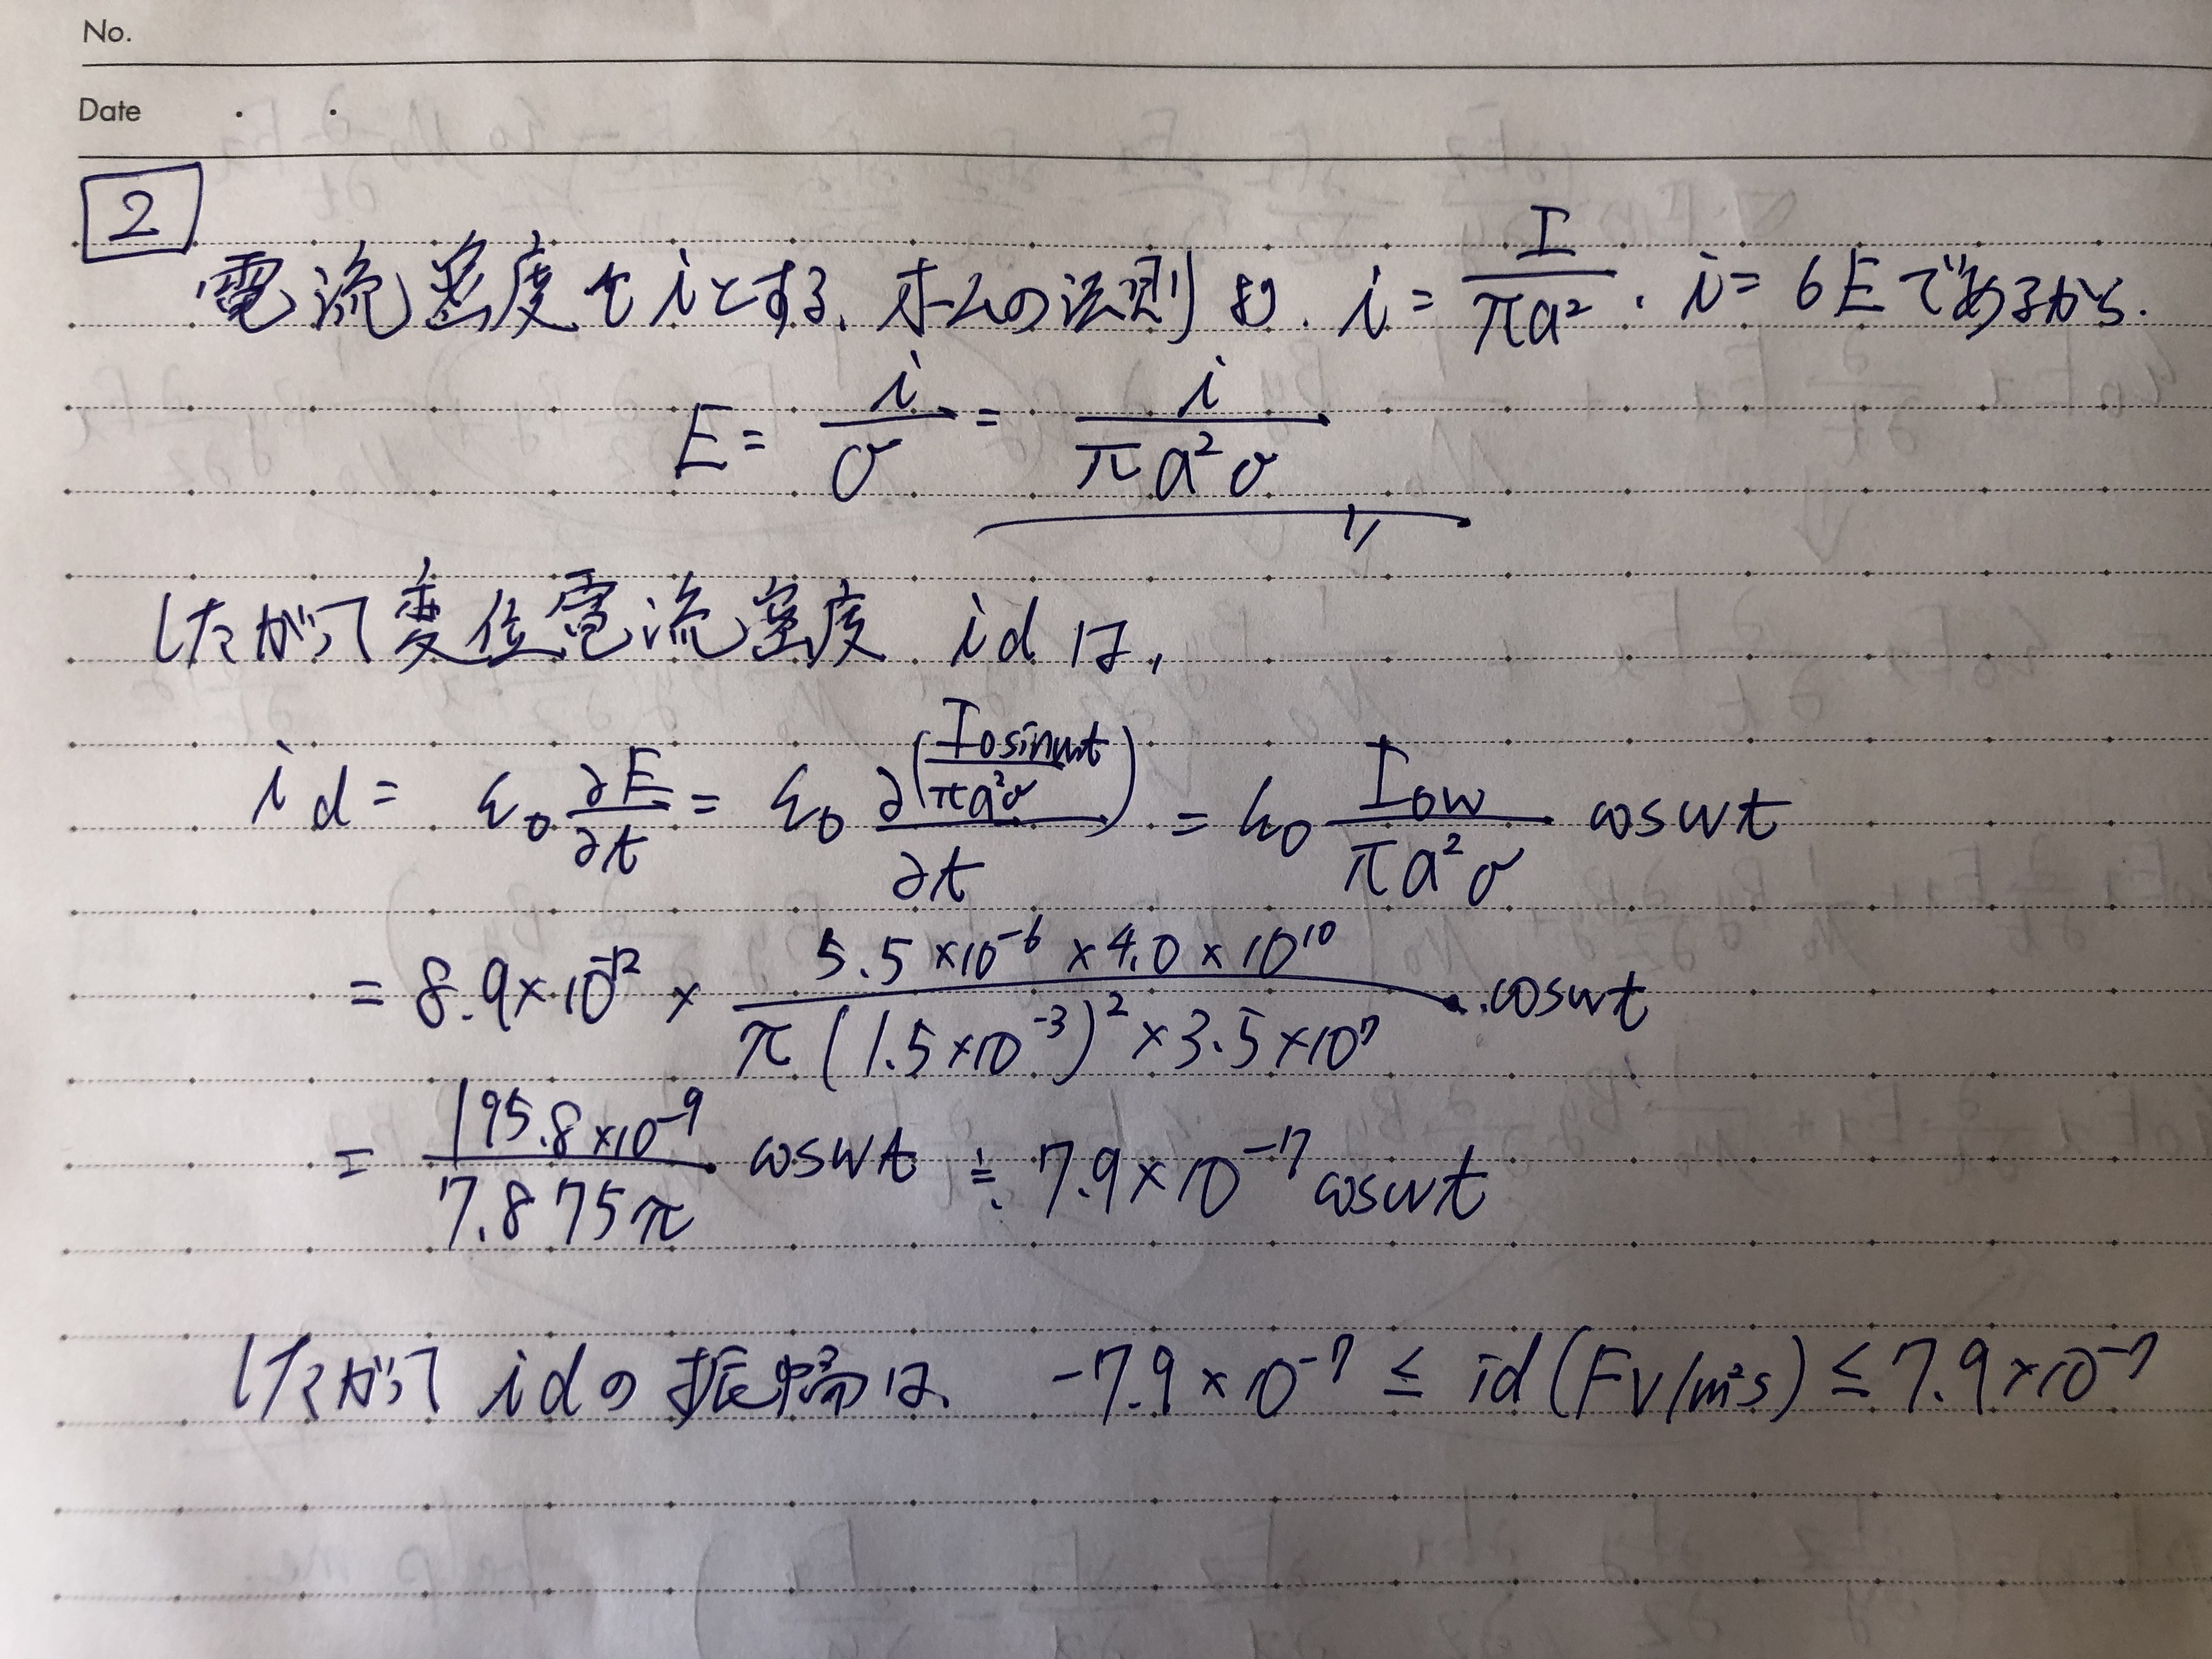 No.
Date
2
電流密度をiとする、オームの法則より、i = I/πa²、i = σEであるから、
E = i/σ = i/πa²σ
したがって変位電流密度 id は、
id = ε0 ∂E/∂t = ε0 ∂(I0sinωt/πa²σ)/∂t = ε0 I0ω/πa²σ cosωt
= 8.9×10⁻¹² × 5.5×10⁻⁶×4.0×10¹⁰/π(1.5×10⁻³)²×3.5×10⁷ ・cosωt
= 195.8×10⁻⁹/7.875π cosωt ≒ 7.9×10⁻⁷cosωt
したがって idの振幅は、 -7.9×10⁻⁷ ≦ id(FV/m²s) ≦ 7.9×10⁻⁷